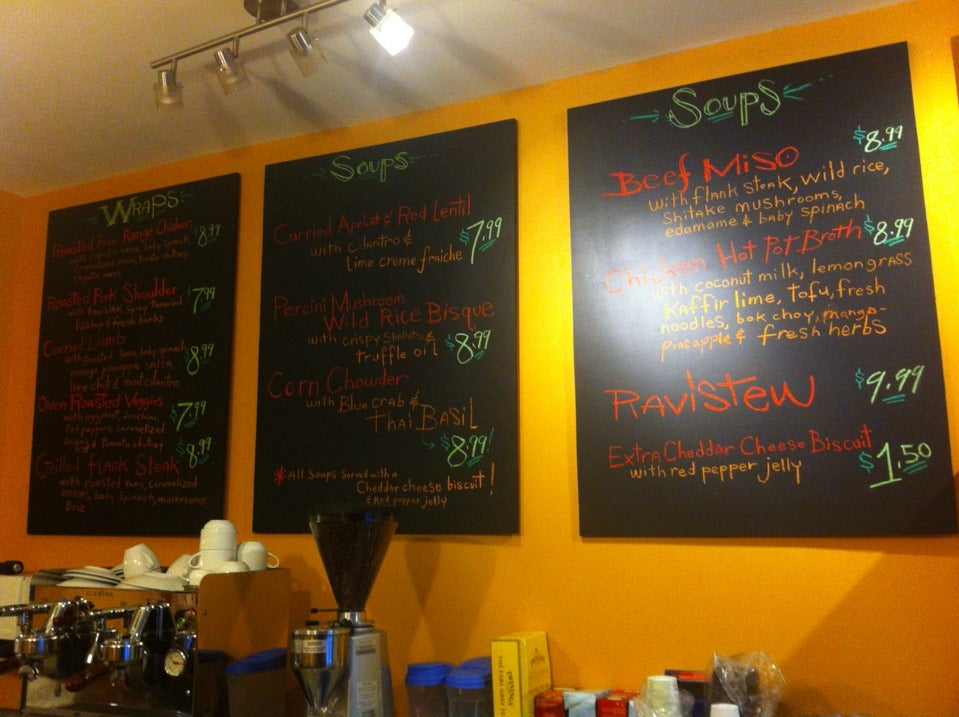 WRAPS
Roasted Free Range Chicken $8.99
Roasted Pork Shoulder $7.99
ketchup & fresh herbs
Curried Lamb
with Roasted Yams, baby spinach,
mango, pineapple salsa, $8.99
lime chili & mint cilantro
Oven Roasted Veggies
with eggplant, zucchini, $7.99
red peppers, caramelized
onions & tomato chutney
Grilled flank Steak $8.99
with roasted Yams, caramelized
onions, baby spinach, mushrooms
Brie
Soups
Curried Apricot & Red Lentil
with cilantro & $7.99
lime creme fraiche
Porcini Mushroom
Wild Rice Bisque
with crispy shallots & $8.99
truffle oil
Corn Chowder
with Blue crab &
Thai BASIL
$8.99!
*All Soups Served with a
Cheddar cheese biscuit!
& Red pepper jelly
SOUPS
$8.99
Beef MiSO
with flank steak, wild rice,
Shitake mushrooms,
edamame & baby spinach
Chicken Hot Pot Broth $8.99
with coconut milk, lemongrass
Kaffir lime, Tofu, fresh
noodles, bok choy, mango-
pineapple & fresh herbs
RAVISTEW $9.99
Extra Cheddar Cheese Biscuit $1.50
with red pepper jelly